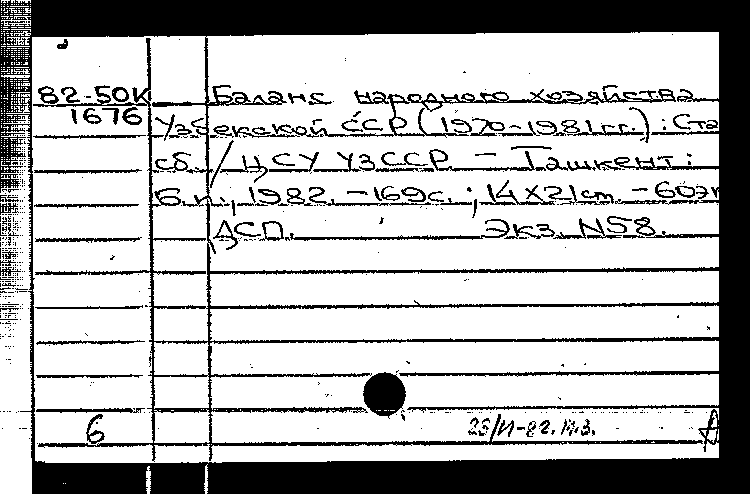 82-50К Баланс народного хозяйства
1676 Узбекской ССР (1970-1981гг.): Ста
сб. / ЦСУ УзССР. - Ташкент:
Б.и., 1982. - 169с.; 14Х21см. - 60эк
ДСП. Экз. N58.
6